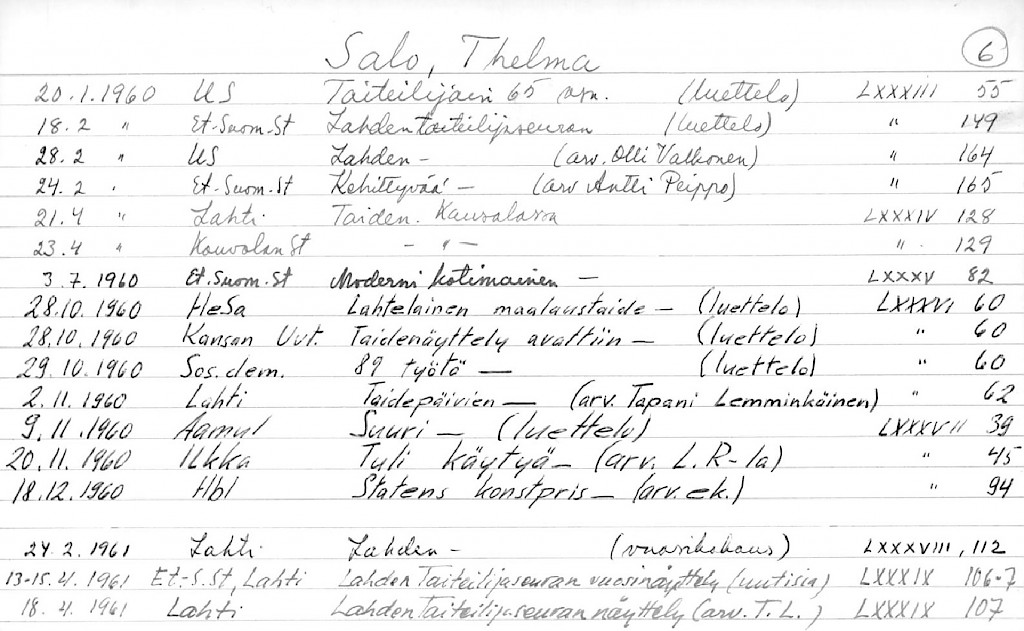 Salo, Thelma 6
20.1.1960 US Taiteilijain 65 vsn. (luettelo) LXXXIII 55
18.2 " Et-Suom-St Lahden taiteilijaseuran (luettelo) " 149
28.2 " US Lahden - (arv. Olli Valkonen) " 164
24.2 " Et-Suom-St Kehittyvää - (arv Antti Peippo) " 165
21.4 " Lahti Taiden. Kouvolassa LXXXIV 128
23.4 " Kouvolan St - " - " 129
3.7.1960 Et.Suom.St Moderni kotimainen - LXXXV 82
28.10.1960 HeSa Lahtelainen maalaustaide - (luettelo) LXXXVI 60
28.10.1960 Kansan Uut. Taidenäyttely avattiin - (luettelo) " 60
29.10.1960 Sos.dem. 89 työtä - (luettelo) " 60
2.11.1960 Lahti Taidepäivien - (arv. Tapani Lemminkäinen) " 62
9.11.1960 Aamul Suuri - (luettelo) LXXXVII 39
20.11.1960 Ilkka Tuli käytyä - (arv. L.R-la) " 45
18.12.1960 Hbl Statens konstpris - (arv. ek.) " 94
24.2.1961 Lahti Lahden - (vuosikokous) LXXXVIII, 112
13-15.4.1961 Et-S.St, Lahti Lahden Taiteilijaseuran vuosinäyttely (uutisia) LXXXIX 106-7
18.4.1961 Lahti Lahden Taiteilijaseuran näyttely (arv. T.L.) LXXXIX 107